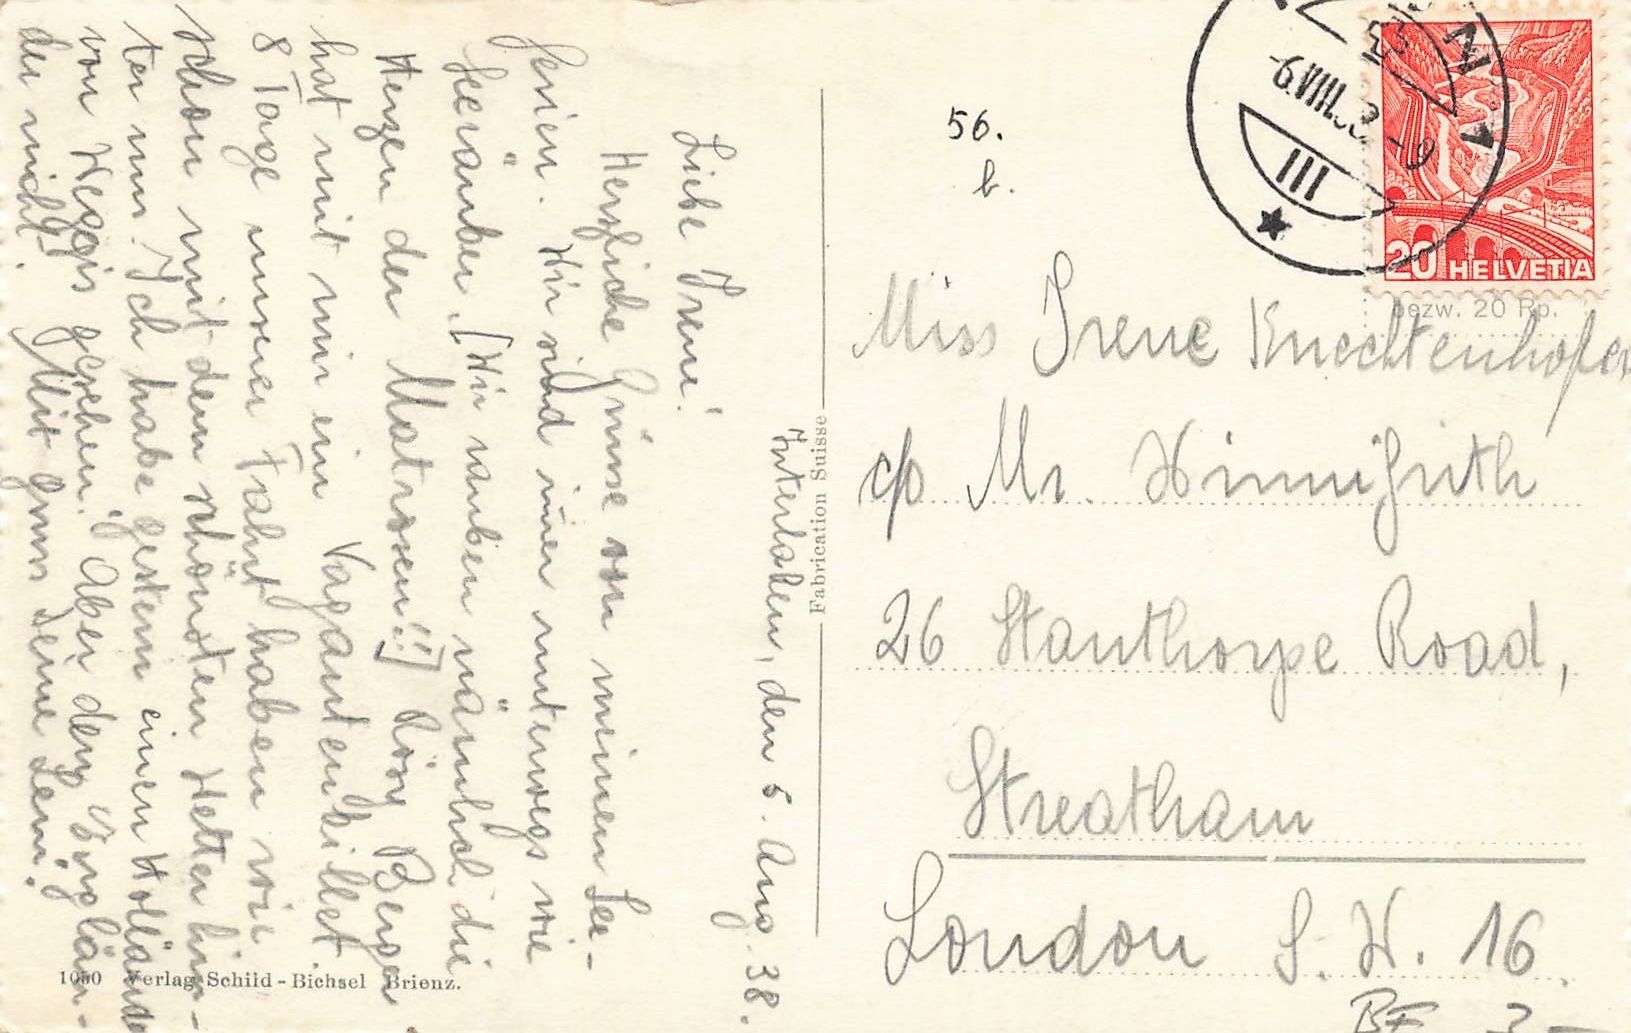 Interlaken, den 5. Aug. 38.
Liebe Irene!
Herzliche Grüsse von meinen Fe-
rien. Wir sind immer unterwegs wie
Seeräuber. [Wir rauben nämlich die
Herzen der Matrosen!!] Rösy Berger
hat mit mir ein Vagantenbillet.
8 Tage unserer Fahrt haben wir
schon mit dem schönsten Wetter hin-
ter uns. Ich habe gestern einen Holländer
von Weggis gesehen. Aber den Englän-
der nicht. Mit Gruss Deine Leni.
Fabrication Suisse
1050 Verlag Schild-Bichsel Brienz.
56.
b.
-6.VIII.38 -9
III
20 HELVETIA
bezw. 20 Rp.
Miss Irene Knechtenhofer
c/o Mr. Winnifrith
26 Stanthorpe Road,
Streatham
London S.W. 16.